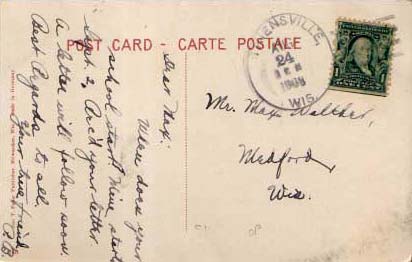 POST CARD - CARTE POSTALE
Dear Max:
When does your
school start? Mine starts
Sept. 2. Rec'd your letter.
A letter will follow soon.
Best Regards to all.
Your true friend
P.B.
ENSVILLE,
24
1908
WIS.
Mr. Max Walther,
Medford,
Wis.